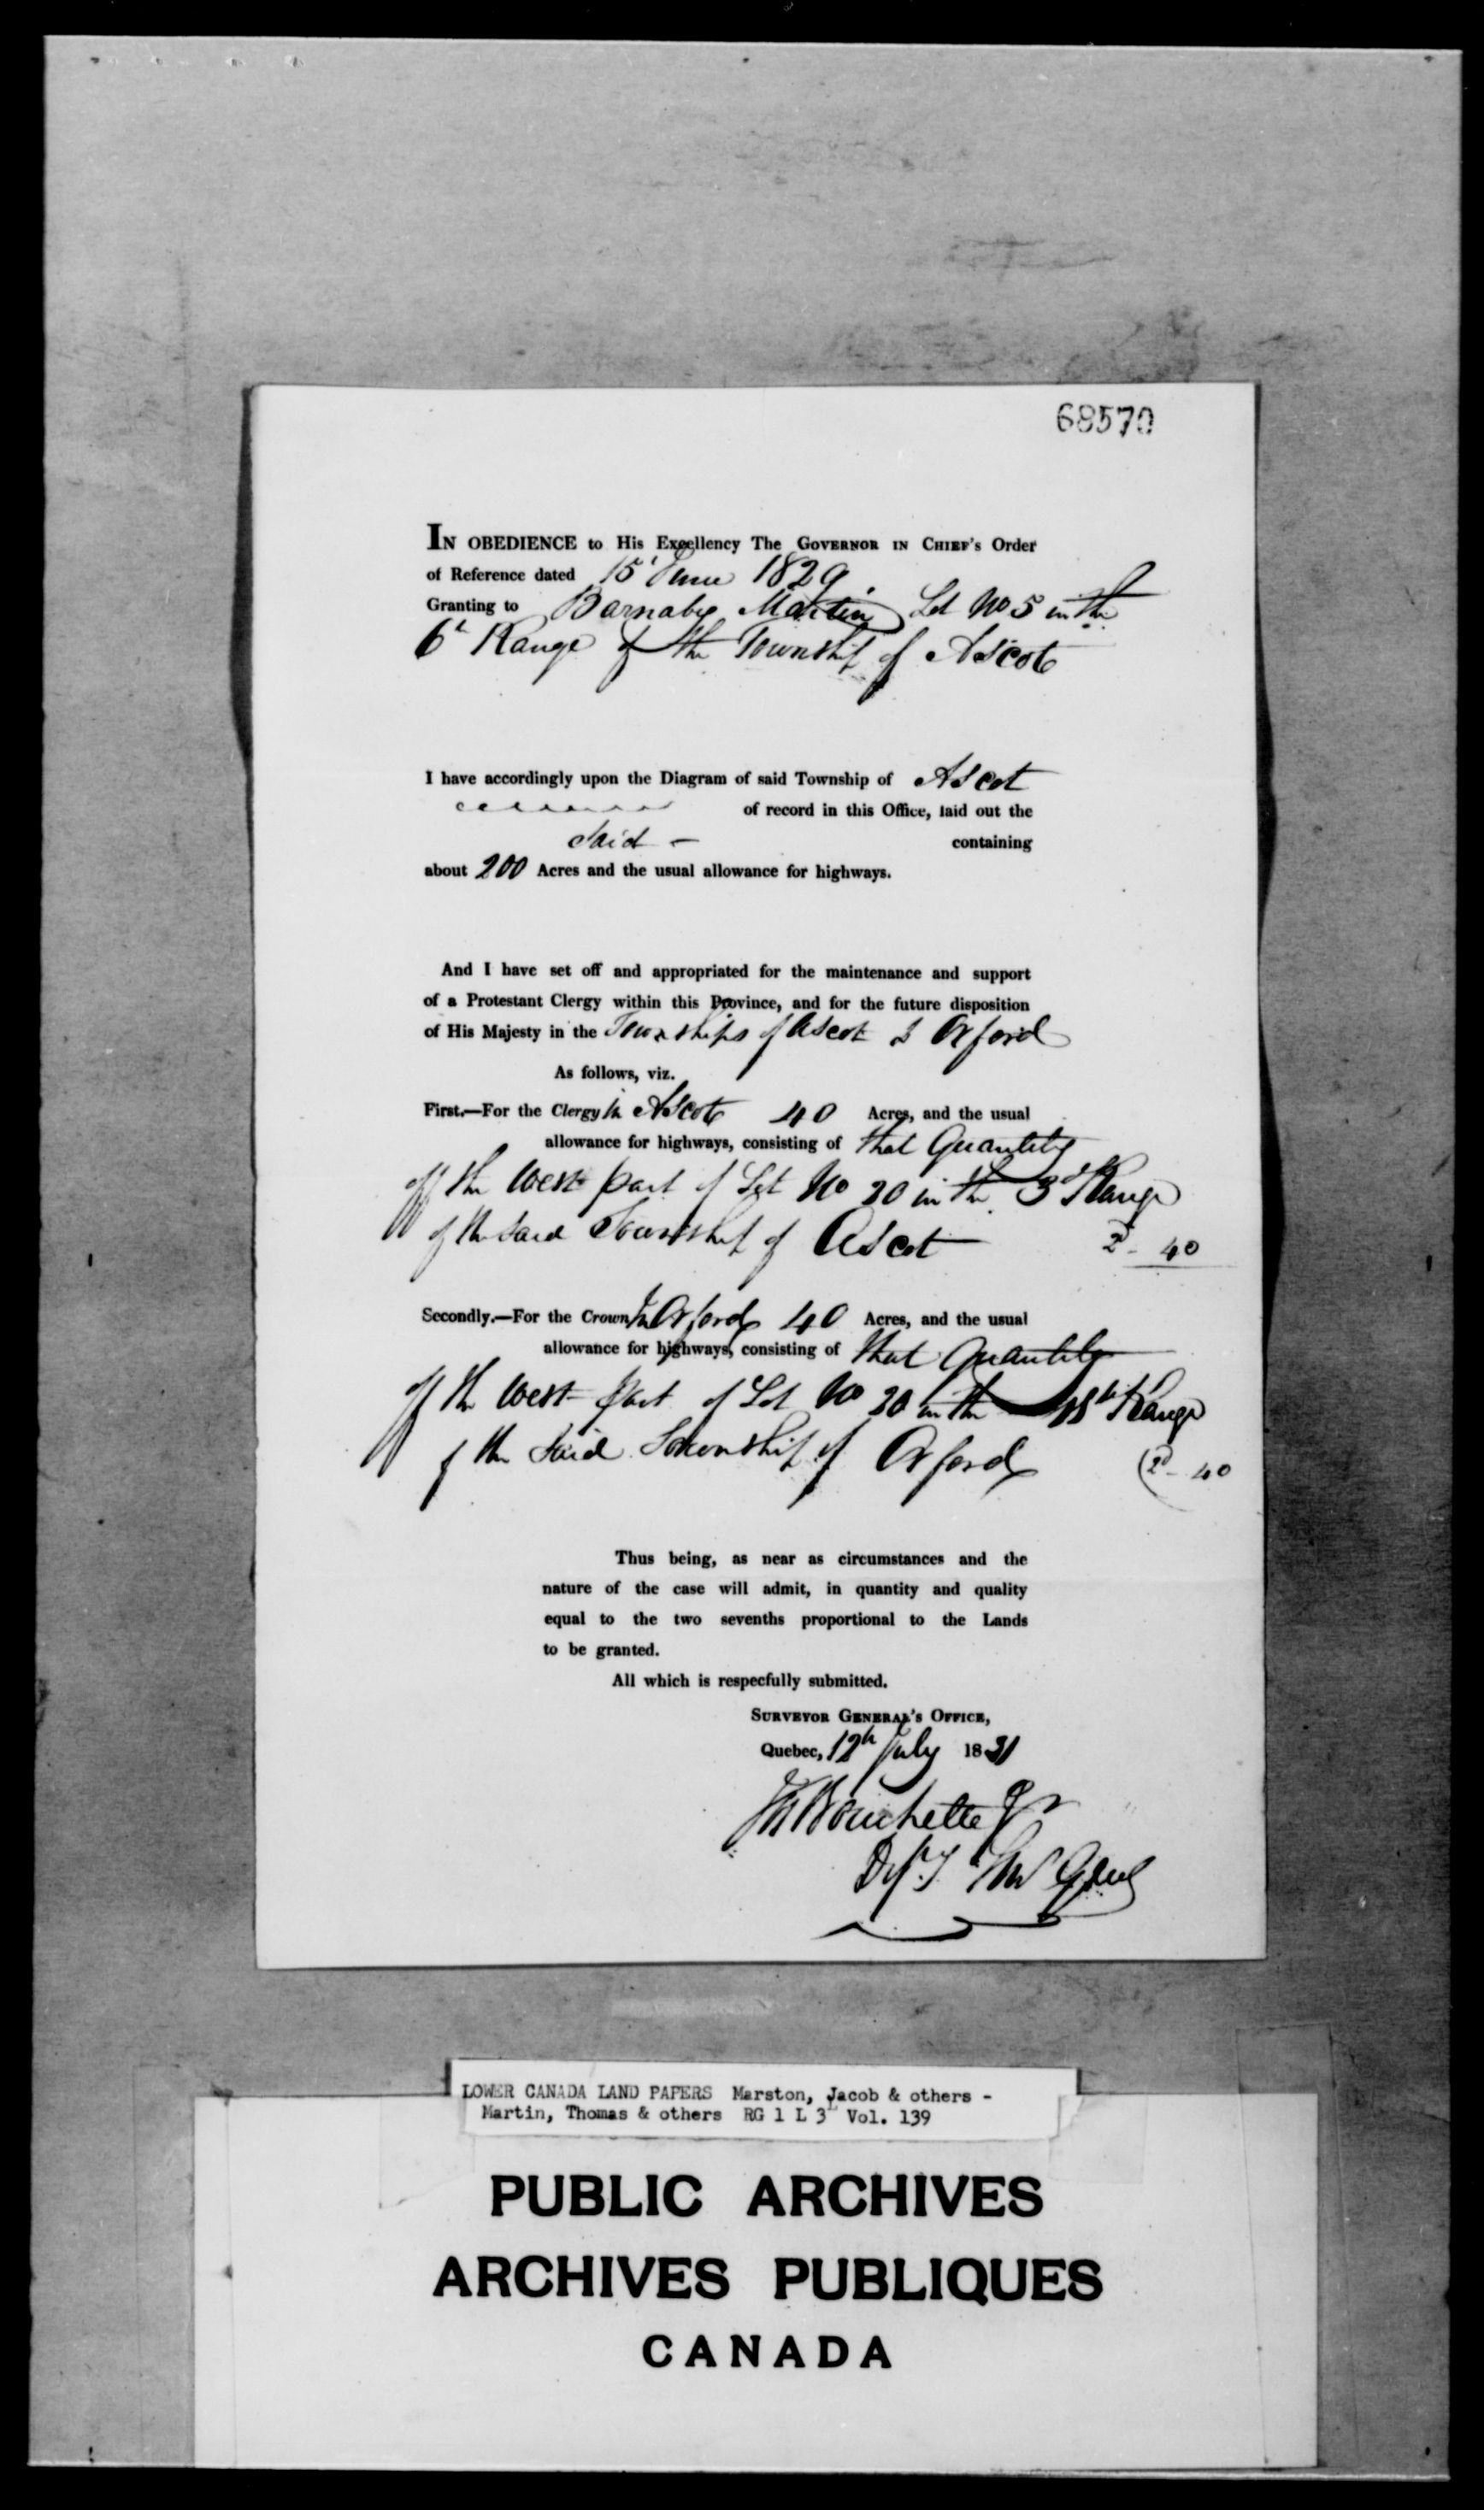 68570
IN OBEDIENCE to His Excellency The GOVERNOR IN CHIEF's Order
of Reference dated 15 June 1829.
Granting to Barnabe Martin Lot No 5 in the
6th Range of the Township of Ascot
I have accordingly upon the Diagram of said Township of Ascot
of record in this Office, laid out the
Said - containing
about 200 Acres and the usual allowance for highways.
And I have set off and appropriated for the maintenance and support
of a Protestant Clergy within this Province, and for the future disposition
of His Majesty in the Townships of Ascot & Orford
As follows, viz.
First.—For the Clergy in Ascot 40 Acres, and the usual
allowance for highways, consisting of that Quantity
off the West part of Lot No 20 in the 3d Range
of the said Township of Ascot
40
Secondly.—For the Crown in Orford 40 Acres, and the usual
allowance for highways, consisting of that Quantity
off the West part of Lot No 20 in the Range
of the Said Township of Orford
40
Thus being, as near as circumstances and the
nature of the case will admit, in quantity and quality
equal to the two sevenths proportional to the Lands
to be granted.
All which is respecfully submitted.
SURVEYOR GENERAL's OFFICE,
Quebec, 12th July 1831
Jos Bouchette Jr
Dy S Genl
LOWER CANADA LAND PAPERS Marston, Jacob & others -
Martin, Thomas & others RG 1 L 3L Vol. 139
PUBLIC ARCHIVES
ARCHIVES PUBLIQUES
CANADA